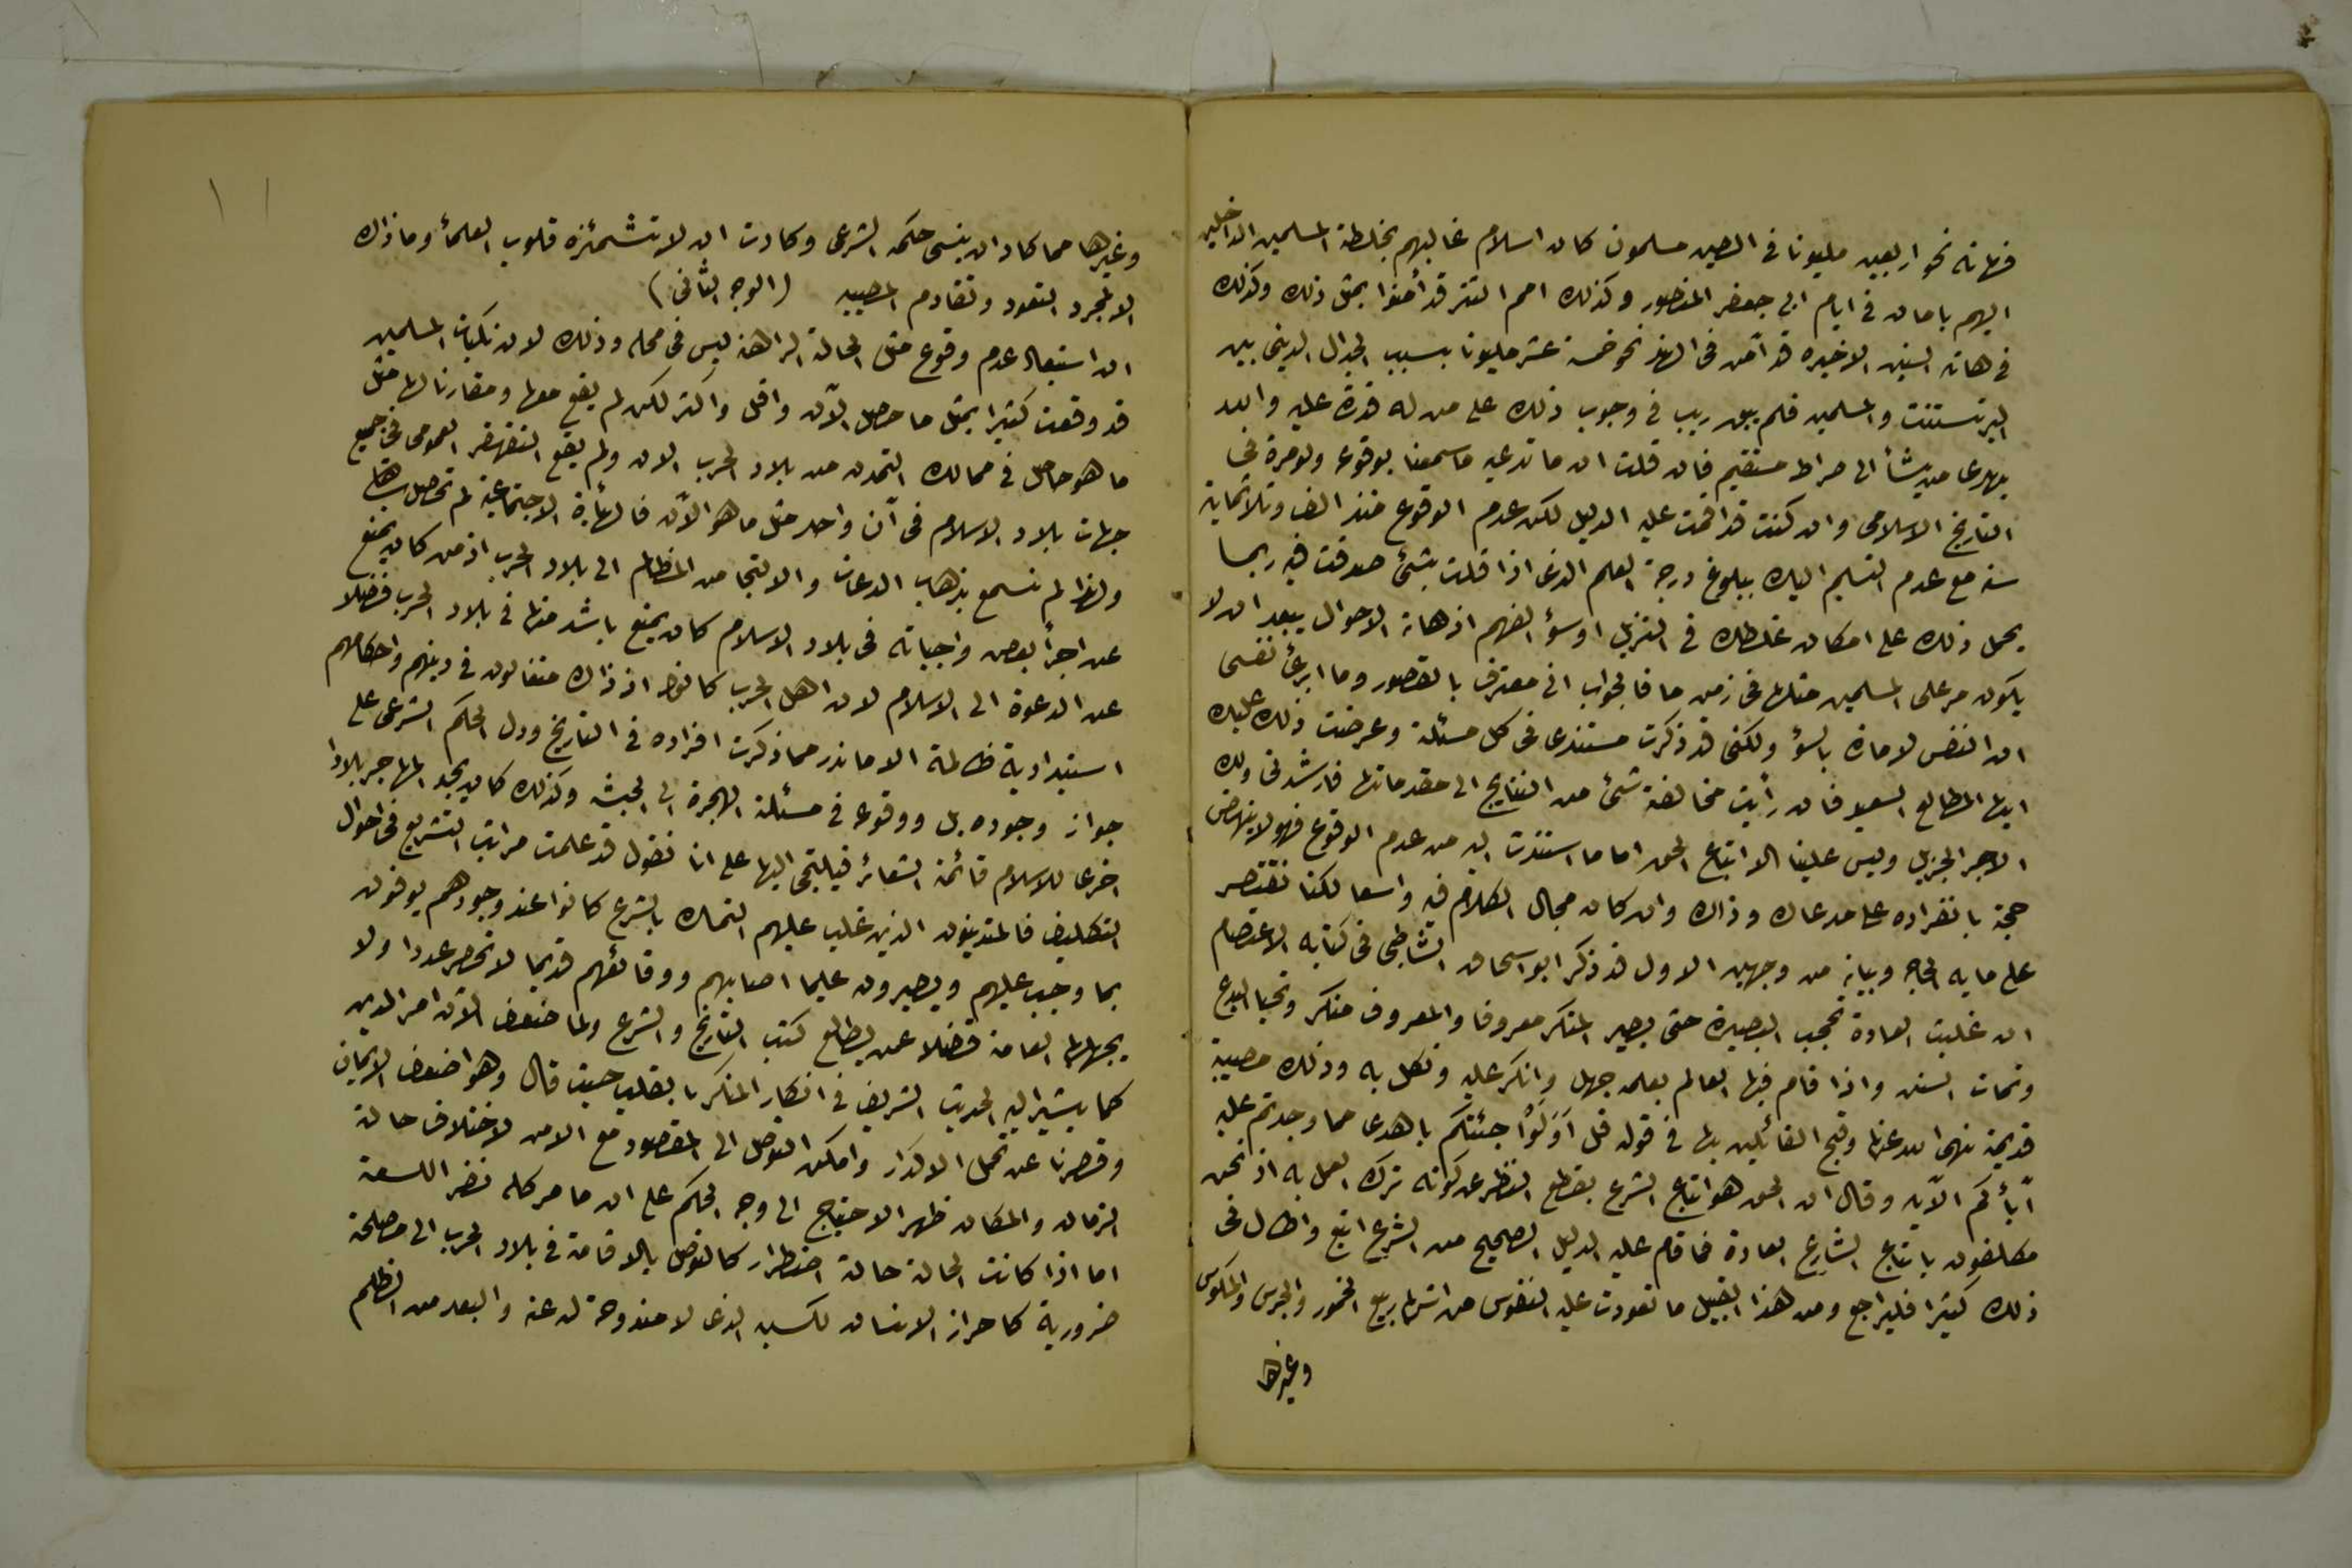 فهاته نحو اربعين مليونا في الصين مسلمون كان اسلام غالبهم بخلطة المسلمين الداخلين
اليهم بامان في ايام ابي جعفر المنصور وكذلك امم التتر قد أمنوا بمثل ذلك وكذلك
في هاته السنين الاخيره قد آمن في الهند نحو خمسة عشر مليونا بسبب الجدال الديني بين
البرتستنت والمسلمين فلم يبق ريب في وجوب ذلك على من له قدرة عليه والله
يهدي من يشأ الى صراط مستقيم فان قلت ان ما تدعيه ما سمعنا بوقوعه ولو مرة في
التاريخ الاسلامي وان كنت قد اقمت عليه الدليل لكن عدم الوقوع منذ الف وثلاثماية
سنه مع عدم التسليم اليك ببلوغ درجة العلم الذي اذا قلت بشئ صدقت فيه ربما
يحمل ذلك على امكان غلطك في التنزيل او سؤ الفهم اذ هاته الاحوال يبعد ان لا
يكون مر على المسلمين مثلها في زمن ما فالجواب اني معترف بالقصور وما ابرئ نفسي
ان النفس لامارة بالسؤ ولكني قد ذكرت مستندي في كل مسئلة وعرضت ذلك عليك
ايها المطالع السعيد فان رأيت مخالفة شئ من النتايج الى مقدماتها فارشدني ولك
الاجر الجزيل وليس علينا الا اتباع الحق اما ما استندت اليه من عدم الوقوع فهو لا ينهض
حجة بانفراده على مدعاك وذاك وان كان مجال الكلام فيه واسعا لكنا نقتصر
على ما به الحاجه وبيانه من وجهين الاول قد ذكر ابو اسحاق الشاطبي في كتابه الاعتصام
ان غلبت العادة تحجب البصيرة حتى يصير المنكر معروفا والمعروف منكر وتحيا البدع
وتمات السنن واذا قام فيها العالم بعلمه جهل وانكر عليه ونكل به وذلك مصيبة
قديمة نهى الله عنها وقبح القائلين بها في قوله قل أوَلَوْا جئتكم باهدى مما وجدتم عليه
آبأكم الآيه وقال ان الحق هو اتباع الشرع بقطع النظر عن كونه ترك العمل به اذ نحن
مكلفون باتباع الشارع العادة فما قام عليه الدليل الصحيح من الشرع اتبع واطال في
ذلك كثيرا فليراجع ومن هذا القبيل ما تعودت عليه النفوس من اشهار بيع الخمور والجرس والمكوس
وغيرها
١١
وغيرها مما كاد ان ينسى حكمه الشرعي وكادت ان لا تشمئزه قلوب العلمأ وما ذاك
الا لمجرد التعود وتقادم المصيبه (الوجه الثاني)
ان استبعاد عدم وقوع مثل الحالة الراهنه ليس في محله وذلك لان نكبات المسلمين
قد وقعت كثيرا بمثل ما حصل الآن واقل واكثر لكن لم يقع معها ومقارنا لها مثل
ما هو حاصل في ممالك التمدن من بلاد الحرب الان ولم يقع التقهقر العمومي في جميع
جهات بلاد الاسلام في آن واحد مثل ما هو الآن فالهيأة الاجتماعية لم تحصل سابقا
ولهذا لم نسمع بذهاب الدعات والالتجا من المظالم الى بلاد الحرب اذ من كان يمنع
عن اجرأ بعض واجباته في بلاد الاسلام كان يمنع باشد منها في بلاد الحرب فضلا
عن الدعوة الى الاسلام لان اهل الحرب كانوا اذ ذاك متغالون في دينهم واحكامهم
استبدادية ظالمة الا ما ندر مما ذكرت افراده في التاريخ ودل الحكم الشرعي على
جواز وجوده بل ووقوعه في مسئلة الهجرة الى الحبشه وكذلك كان يجد المهاجر بلادا
اخرى للاسلام قائمة الشعائر فيلتجي اليها على انا نقول قد علمت مراتب التشريع في احوال
التكليف فالمتدينون الذين غلب عليهم التمسك بالشرع كانوا عند وجودهم يوفون
بما وجب عليهم ويصبرون على ما اصابهم ووقائعهم قديما لا تحصر عددا ولا
يجهلها العامة فضلا عن يطالع كتب التاريخ والشرع ولما ضعف الآن امر الدين
كما يشير اليه الحديث الشريف في انكار المنكر بالقلب حيث قال وهو اضعف الايمان
وقصرنا عن تحمل الاكدار وامكن التوصل الى المقصود مع الامن لاختلاف حالة
الزمان والمكان ظهر الاحتياج الى وجه الحكم على ان ما مر كله نضر اللسعة
اما اذا كانت الحالة حالة اضطرار كالتوصل بالاقامة في بلاد الحرب الى مصلحة
ضرورية كاحراز الانسان لكسبه الذي لا مندوحة له عنه والبعد من الظلم